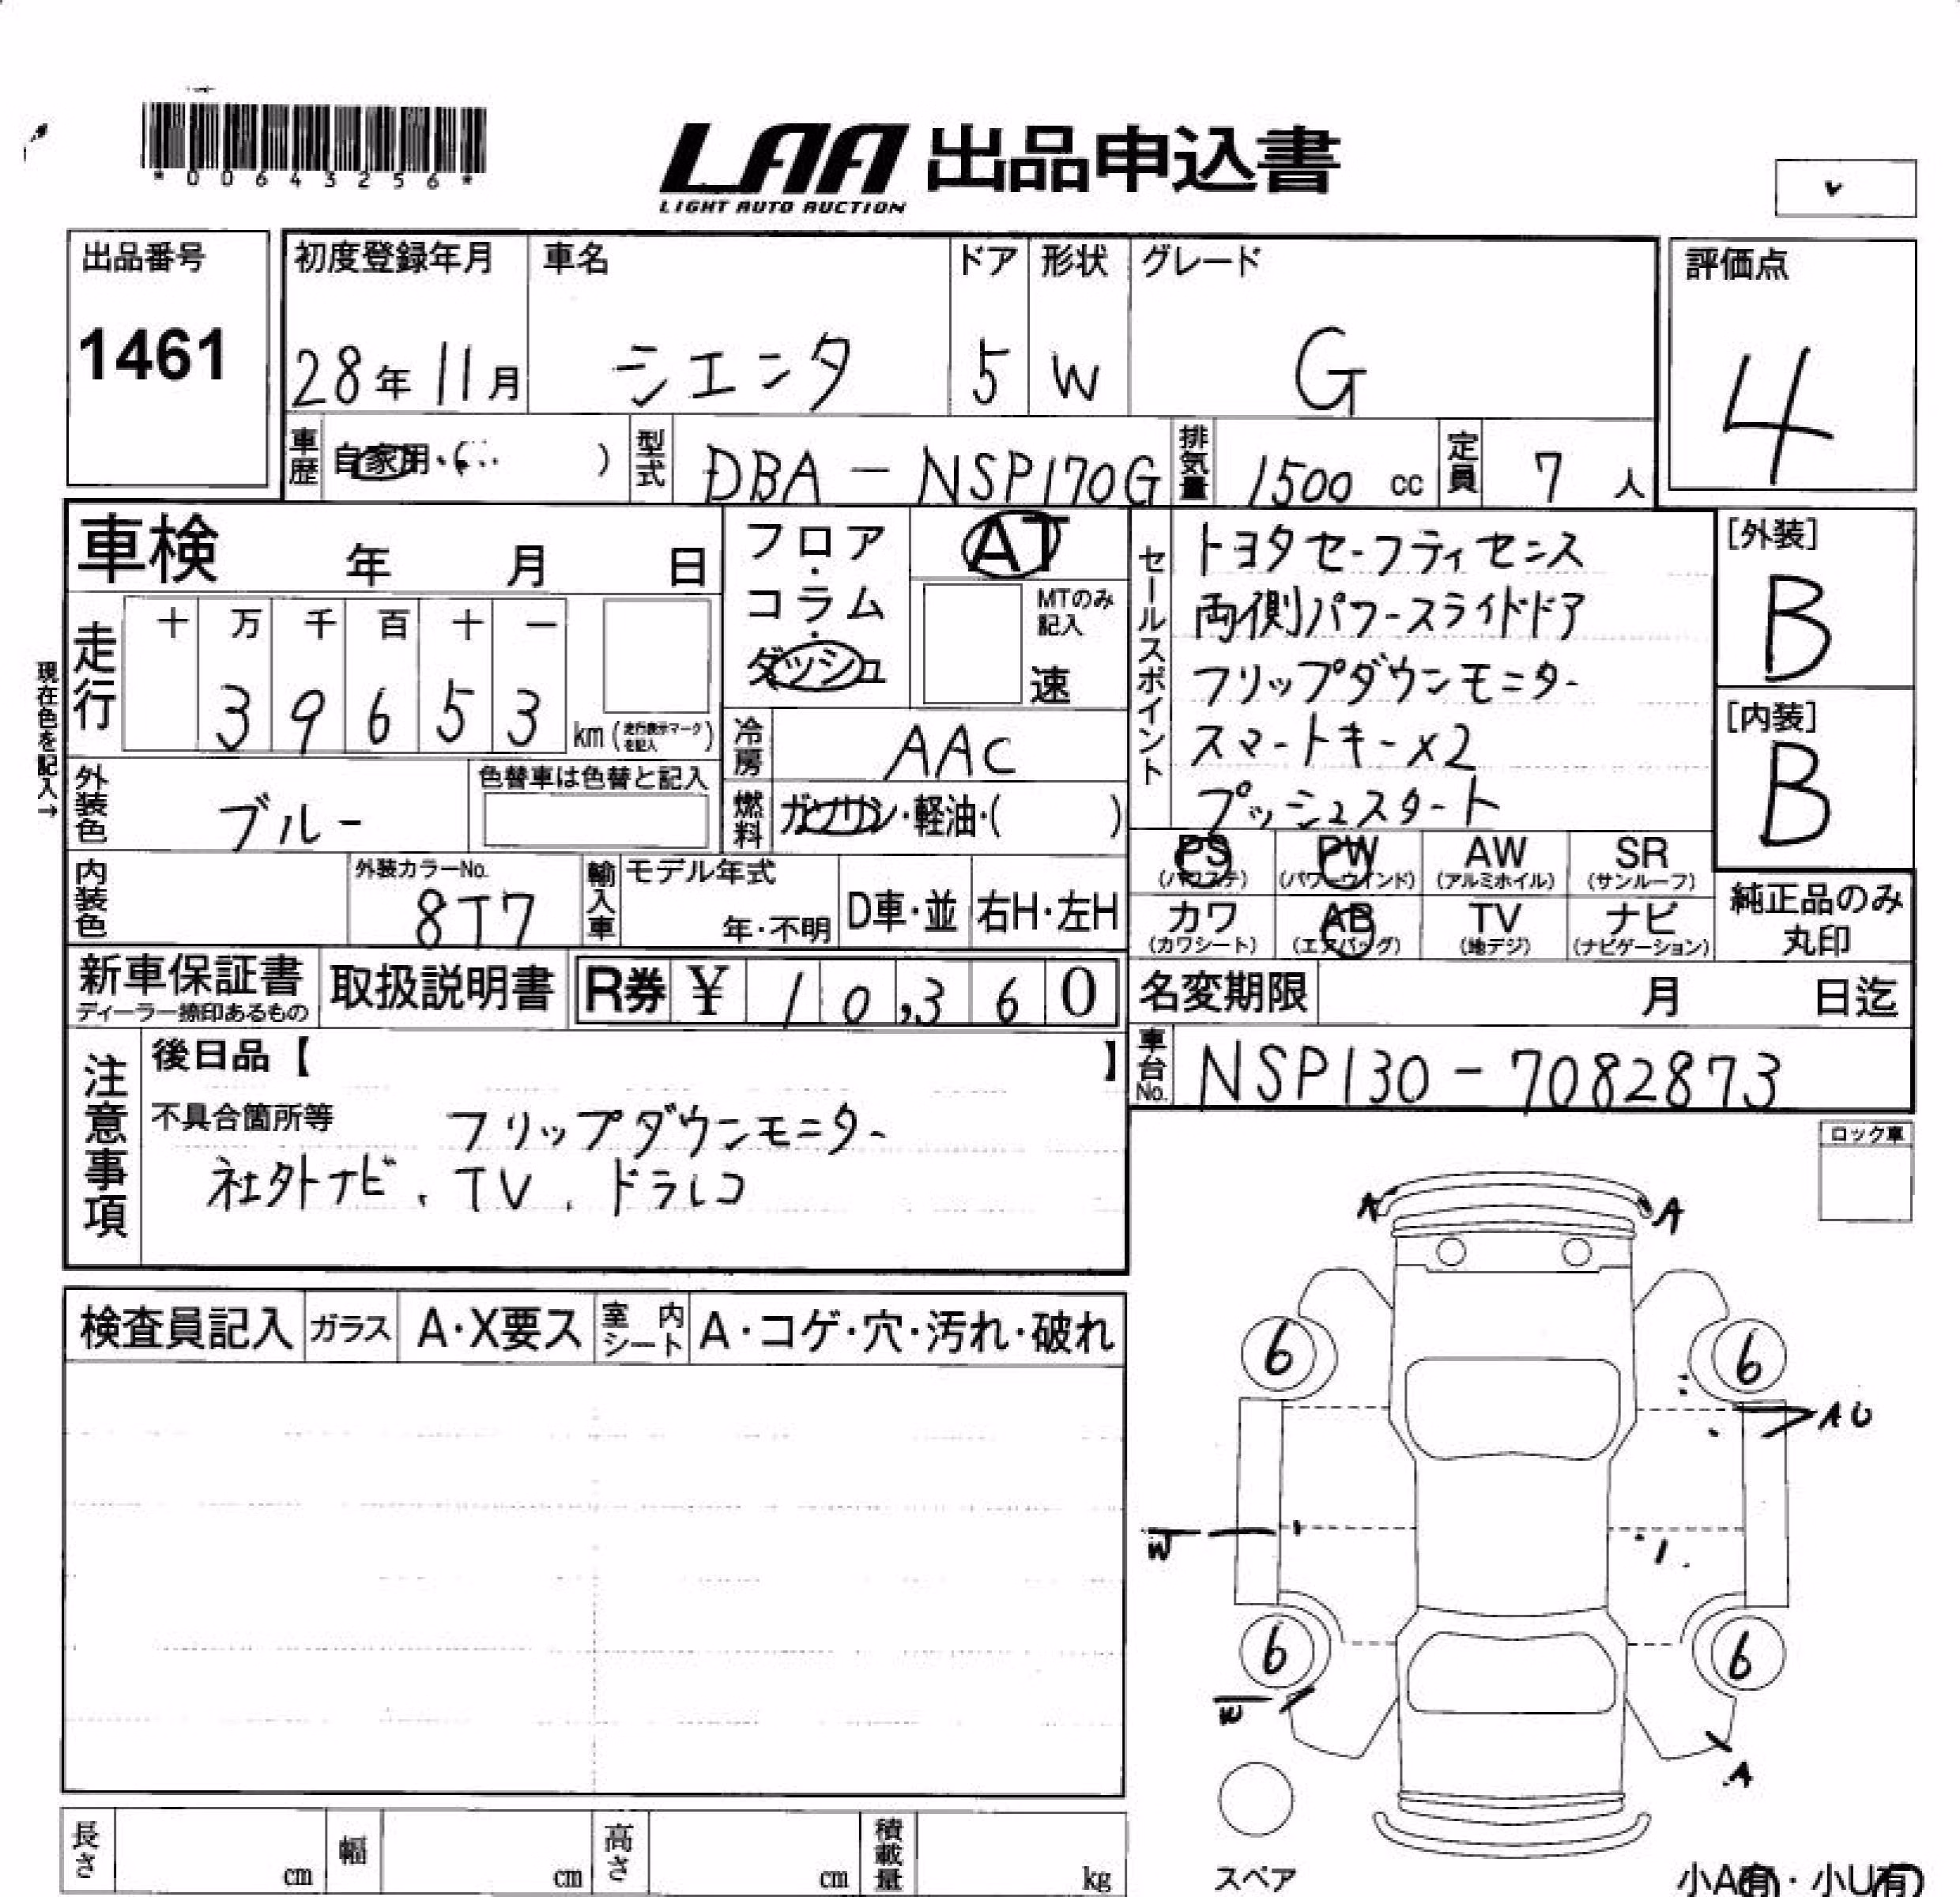 *00643256*
LAA 出品申込書
LIGHT AUTO AUCTION
出品番号
1461
初度登録年月 車名 ドア 形状 グレード
28年11月 シエンタ 5 W G
評価点
4
車歴 自家用・( ) 型式 DBA-NSP170G 排気量 1500 cc 定員 7 人
車検 年 月 日
フロア・コラム・ダッシュ
AT
MTのみ記入
速
セールスポイント
トヨタセーフティセンス
両側パワースライドドア
フリップダウンモニター
スマートキーx2
プッシュスタート
[外装]
B
[内装]
B
現在色を記入→
走行 十 万 千 百 十 一
3 9 6 5 3 km (走行表示マークを記入)
冷房 AAC
外装色 ブルー 色替車は色替と記入
燃料 ガソリン・軽油・( )
PS (パワステ) PW (パワーウインド) AW (アルミホイル) SR (サンルーフ)
カワ (カワシート) AB (エアバッグ) TV (地デジ) ナビ (ナビゲーション)
純正品のみ
丸印
内装色 外装カラーNo. 8T7 輸入車 モデル年式 年・不明 D車・並 右H・左H
新車保証書 ディーラー捺印あるもの 取扱説明書 R券 ¥ 10,360
名変期限 月 日迄
車台No. NSP130-7082873
注意事項
後日品【 】
不具合箇所等 フリップダウンモニター
社外ナビ、TV、ドラレコ
ロック車
A A
6 6
AU
W
6 6
W
A
検査員記入 ガラス A・X要ス 室内シート A・コゲ・穴・汚れ・破れ
長さ cm 幅 cm 高さ cm 積載量 kg
スペア
小A有・小U有